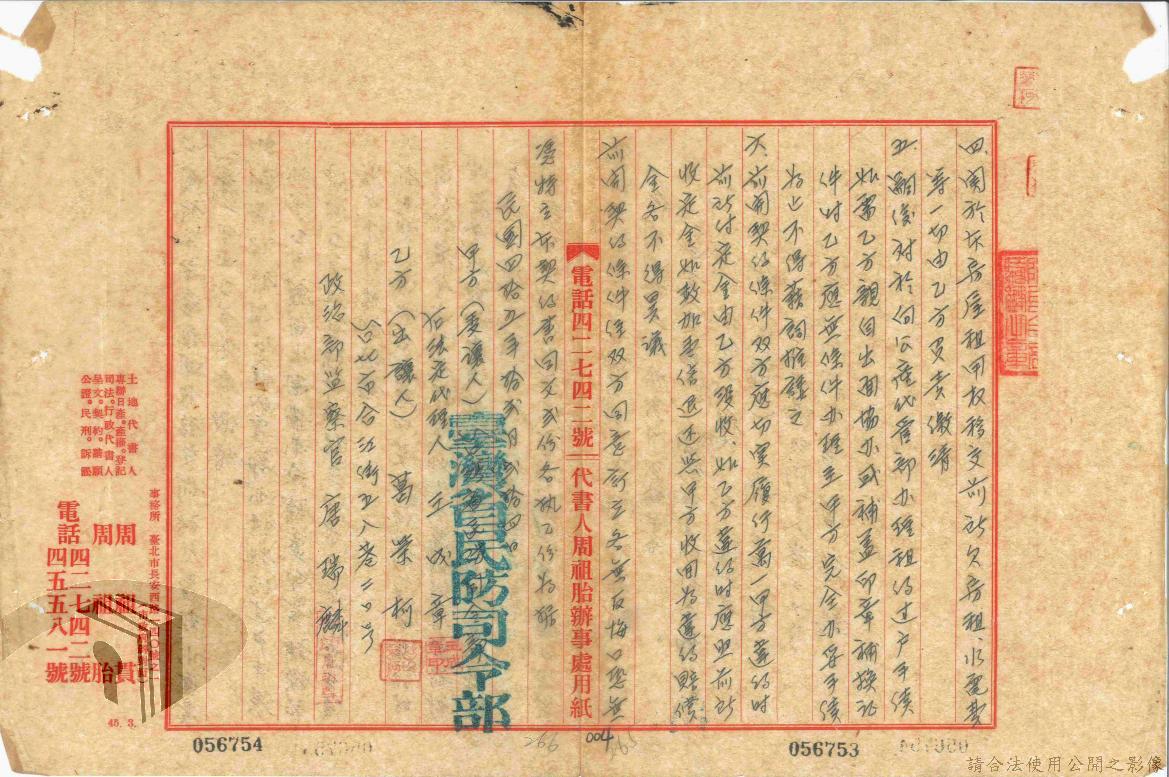 四、關於本房屋租用权移交前所欠房租、水電費
等一切由乙方負責繳清
五、嗣後對於向公產代管部办理租約过户手續
如需乙方親自出面協办或補盖印章補換証
件时乙方應無條件办理至甲方完全办妥手續
为止不得藉詞推諉之
六、前開契約條件双方應切实履行萬一甲方違約时
前所付定金由乙方沒收、如乙方違約时應照前所
收定金如數加壹倍退还與甲方收回为違約賠償
金各不得異議
前開契約條件經双方同意訂立各無反悔口恐無
憑特立本契約書同文弍份各执乙份为據
民國四拾五年拾弍月弍拾四日
甲方(受讓人)
右法定代理人 王成章
乙方(出讓人) 葛榮柯
台北市合江街五八巷二〇号
政治部监察官 唐瑞麟
臺灣省民防司令部
電話四二七四二號
代書人周祖胎辦事處用紙
土地代書人
專辦日產。產權。登記
司法。行政代書人
呈文。契約。聽願
公證。民刑。訴訟
事務所 臺北市長安西路一四〇號之一
周祖貫
周祖胎
電話四二七四二號
四五五八一號
45.3.
056754
056753
004
266
265
請合法使用公開之影像